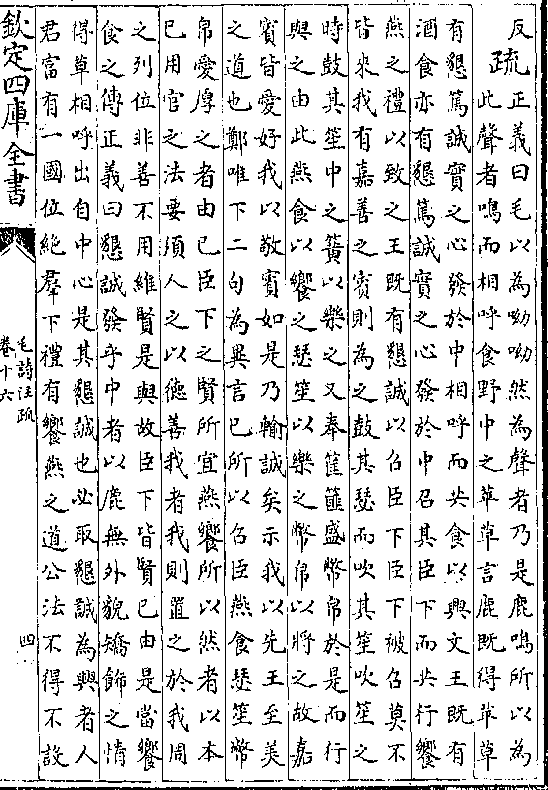 反
疏正義曰毛以為呦呦然為聲者乃是鹿鳴所以為
此聲者鳴而相呼食野中之苹草言鹿既得苹草
有懇篤誠實之心發於中相呼而共食以興文王既有
酒食亦有懇篤誠實之心發於中召其臣下而共行饗
燕之禮以致之王既有懇誠以召臣下臣下被召莫不
皆來我有嘉善之賓則為之鼓其瑟而吹其笙吹笙之
時鼓其笙中之簧以樂之又奉筐篚盛幣帛於是而行
與之由此燕食以饗之瑟笙以樂之幣帛以將之故嘉
賓皆愛好我以敬賓如是乃輸誠矣示我以先王至美
之道也鄭唯下二句為異言已所以召臣燕食瑟笙幣
帛愛厚之者由已臣下之賢所宜燕饗所以然者以本
已用官之法要須人之以德善我者我則置之於我周
之列位非善不用維賢是與故臣下皆賢已由是當饗
食之傳正義曰懇誠發乎中者以鹿無外貌矯飾之情
得草相呼出自中心是其懇誠也必取懇誠為興者人
君富有一國位絶羣下禮有饗燕之道公法不得不設
欽定四庫全書
毛詩注疏
卷十六
四